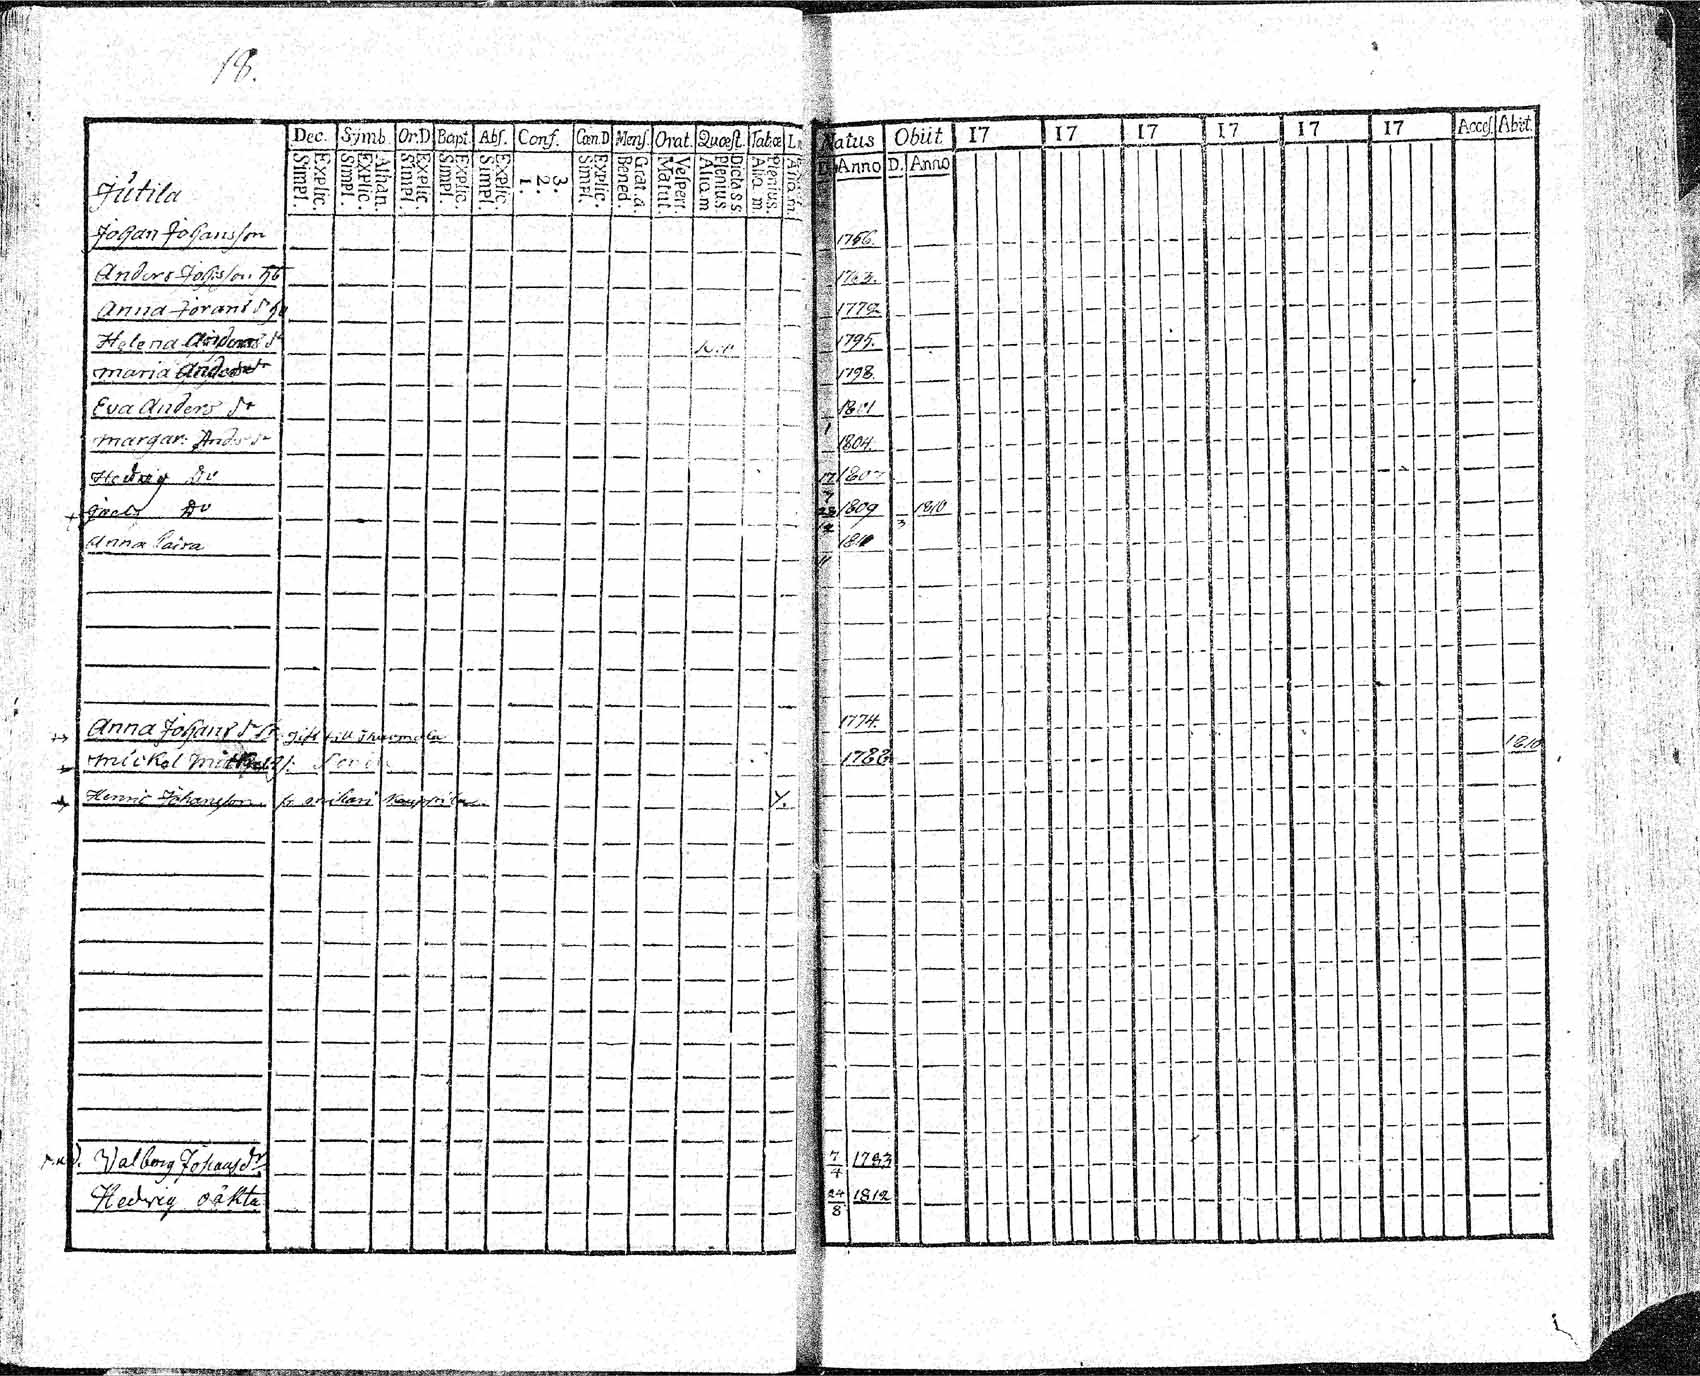 18.
Dec. Symb. Or.D Bapt. Abs. Conf. Cœn.D Mens. Orat. Quæst. Tabæ Natus Obiit 17 17 17 17 17 17 Acces. Abiit.
Explic. Simpl. Athan. Explic. Simpl. Explic. Simpl. Explic. Simpl. Explic. Simpl. 3. 2. 1. Explic. Simpl. Grat. a. Bened. Vespert. Matut. Dicta SS Plenius. Alia m Plenius. Alia m D. Anno D. Anno
Jutila
Johan Johansson 1756.
Anders Johsson 1763.
Anna Jörans dr 1772
Helena Anders dr 1795.
Maria Anders dr 1798.
Eva Anders dr 1801
Margar: Anders dr 1804.
Hedvig Do 17 1807
+ Do 28 12 1809 3 1810
Anna Caisa 11
Anna Johans dr gift till 1774.
Mickel 1788 1810
Henric Johansson fr
Valborg Johans dr 7/4 1783
Hedvig oäkta 24/8 1812